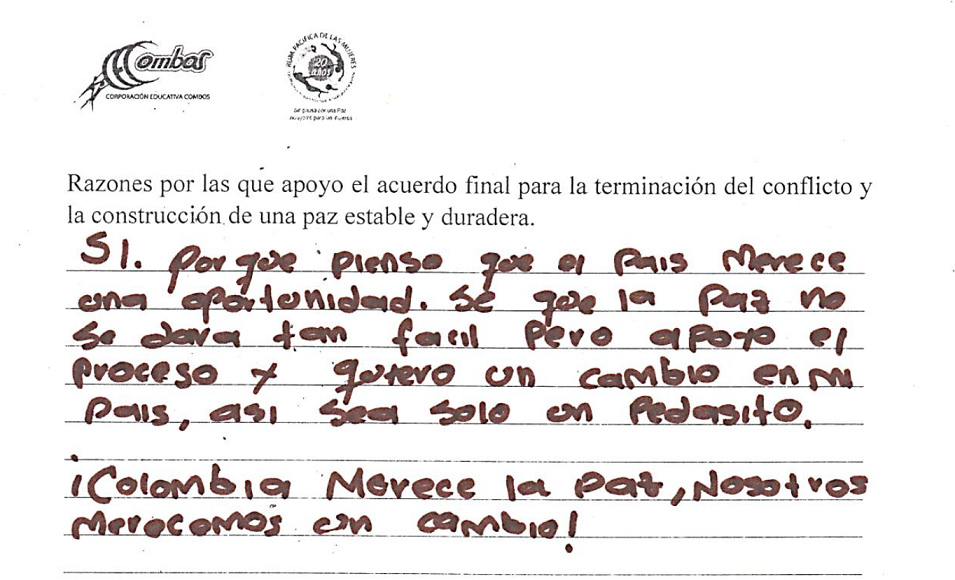 Combos
CORPORACIÓN EDUCATIVA COMBOS
RUTA PACIFICA DE LAS MUJERES
20 años
Razones por las que apoyo el acuerdo final para la terminación del conflicto y
la construcción de una paz estable y duradera.
SI. porque pienso que el Pais Merece
una oportunidad. se que la Paz no
se dara tan facil Pero apoyo el
proceso y quiero un cambio en mi
Pais, asi sea solo un Pedasito.
¡Colombia Merece la paz, Nosotros
Merecemos un cambio!